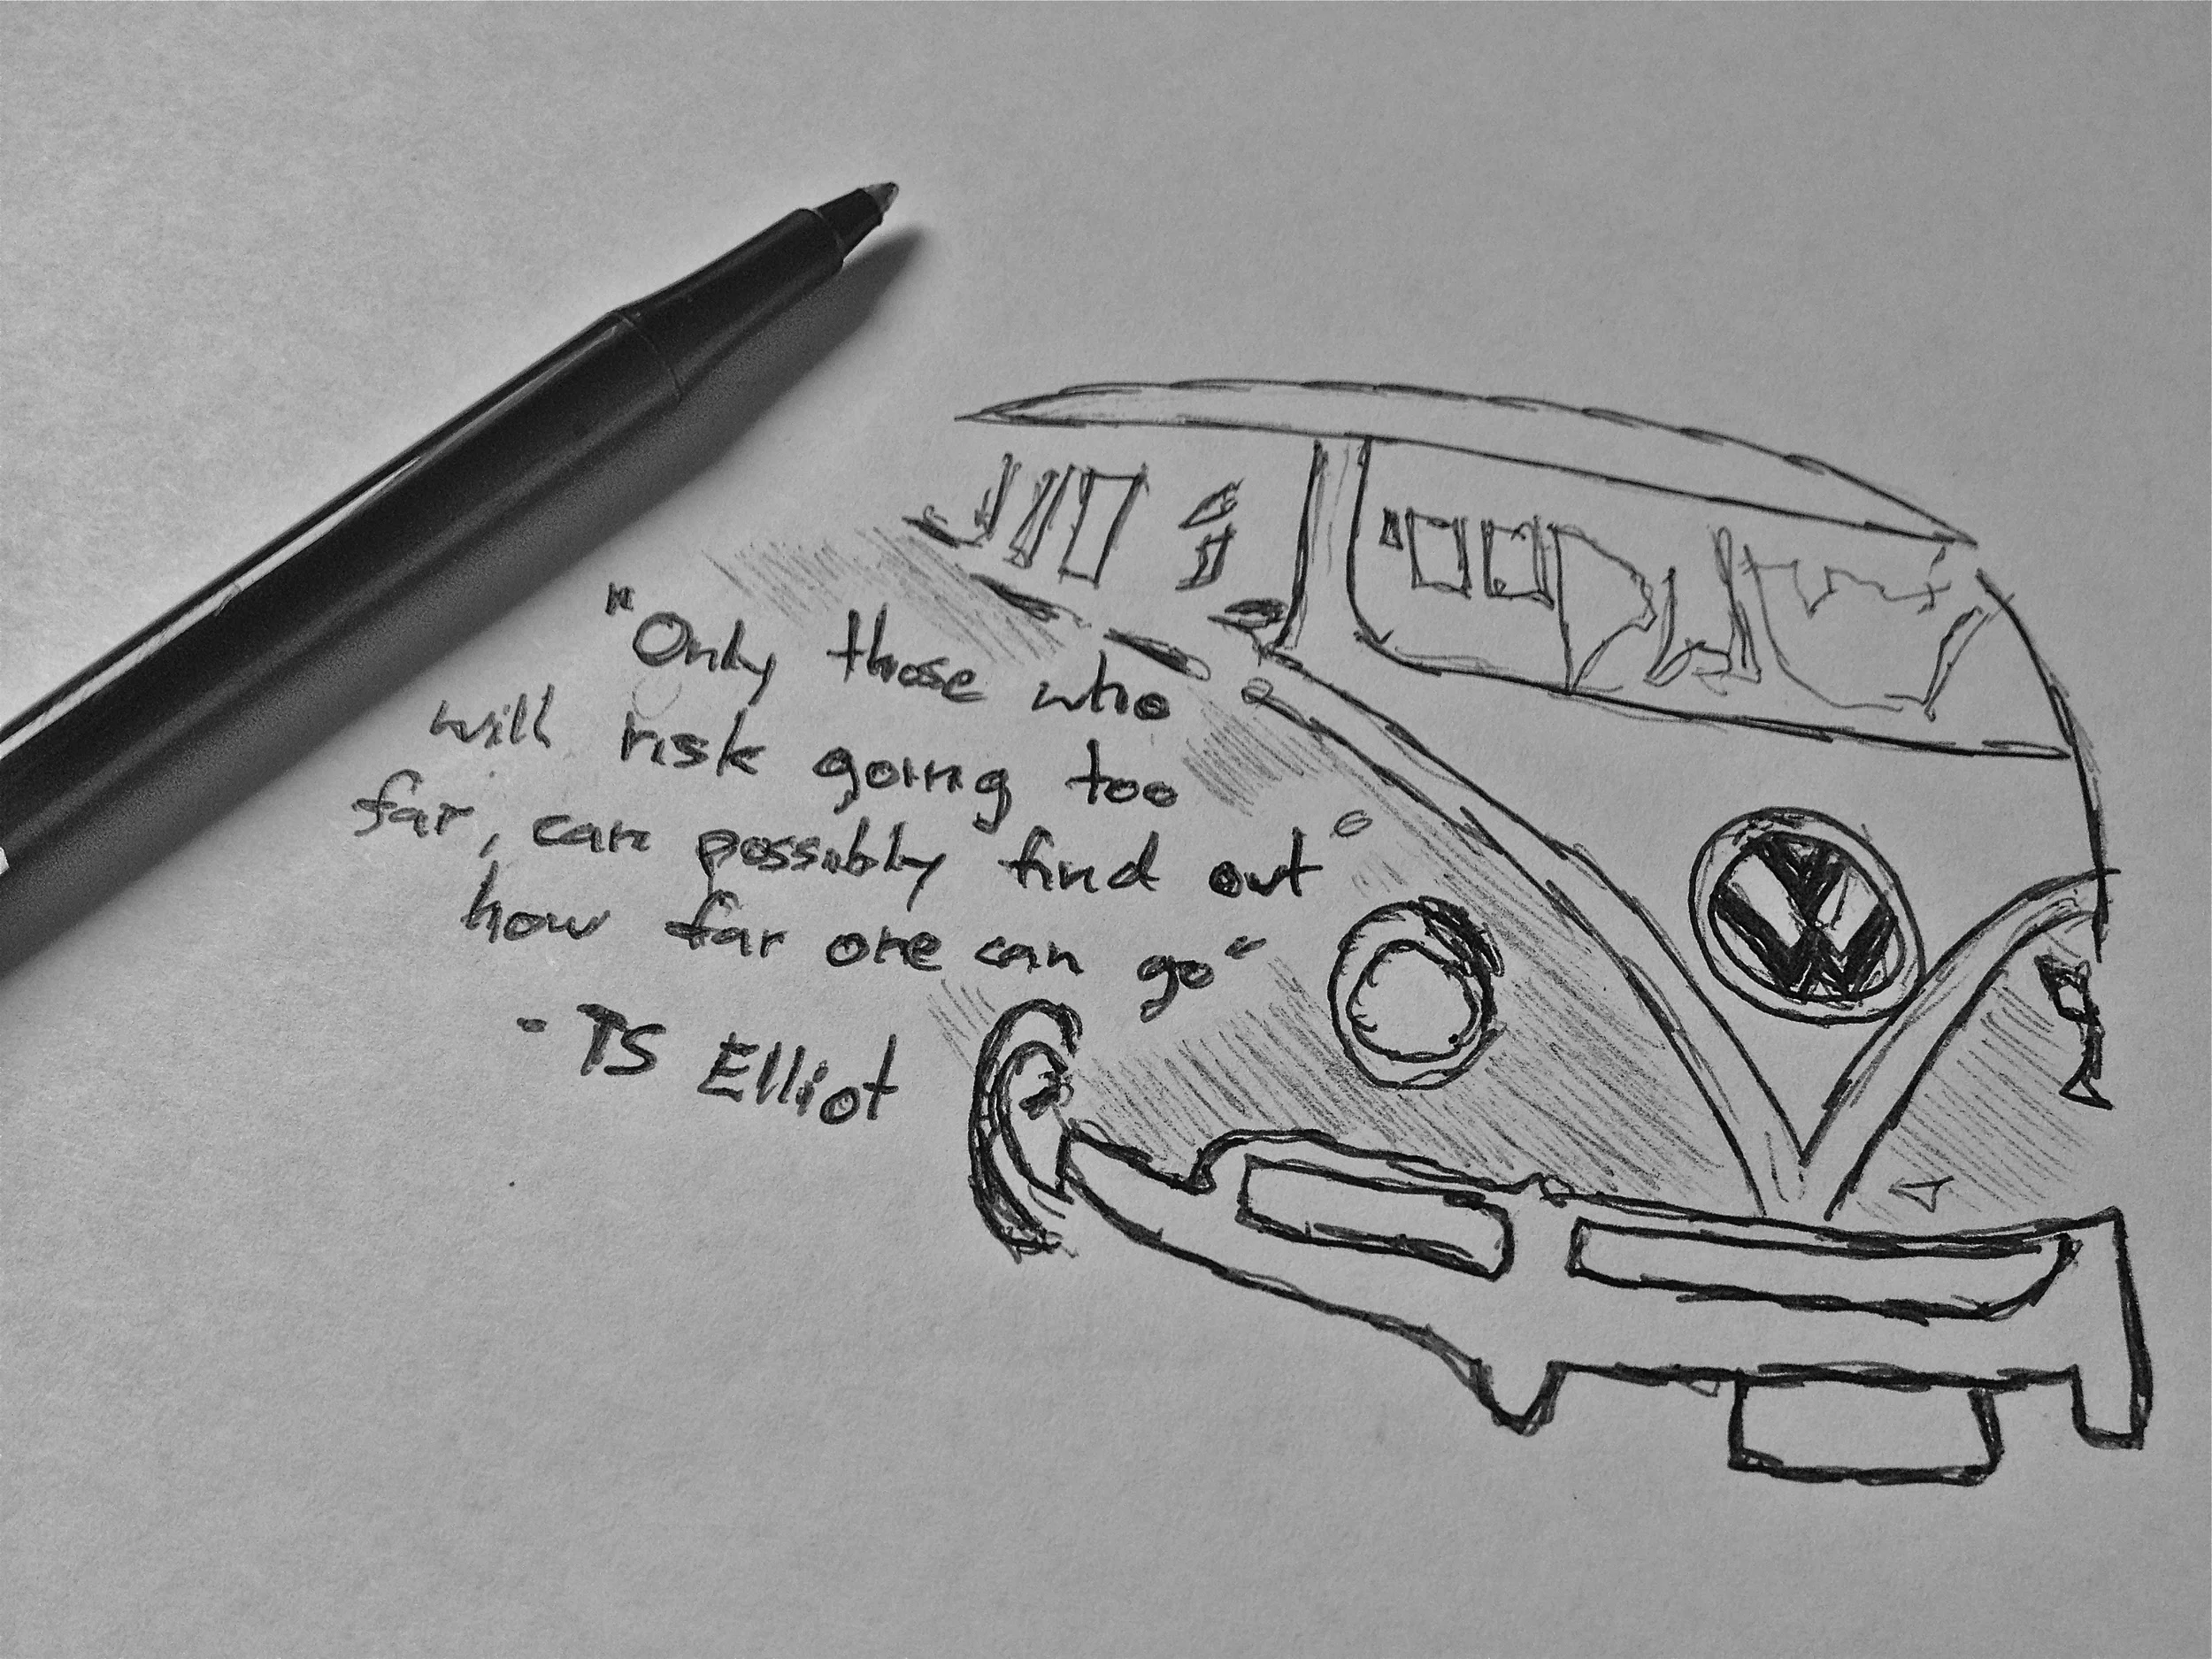 "Only those who
will risk going too
far, can possibly find out"
how far one can go"
- TS Elliot